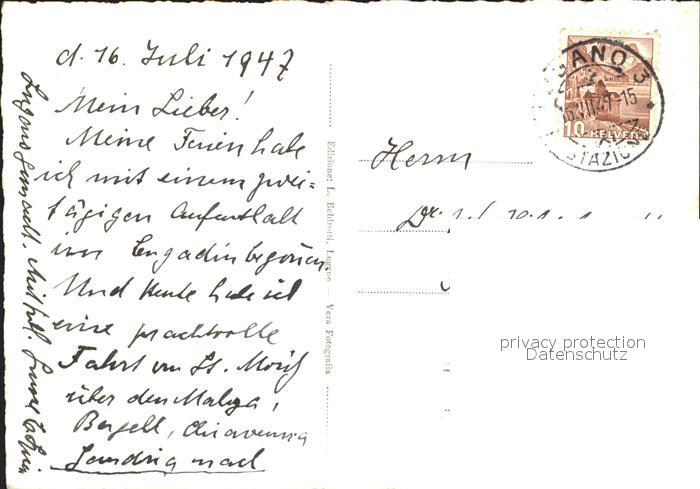 d. 16. Juli 1947
Mein Lieber!
Meine Ferien habe
ich mit einem zwei-
tägigen Aufenthalt
im Engadin begonnen.
Und heute habe ich
eine prachtvolle
Fahrt von St. Moritz
über den Maloja,
Bergell, Chiavenna
nach
Lugano
Edizione: L. Boldrotti, Lugano — Vera Fotografia
LUGANO 3
STAZIONE
10 HELVETIA
Herrn
Dr.
privacy protection
Datenschutz